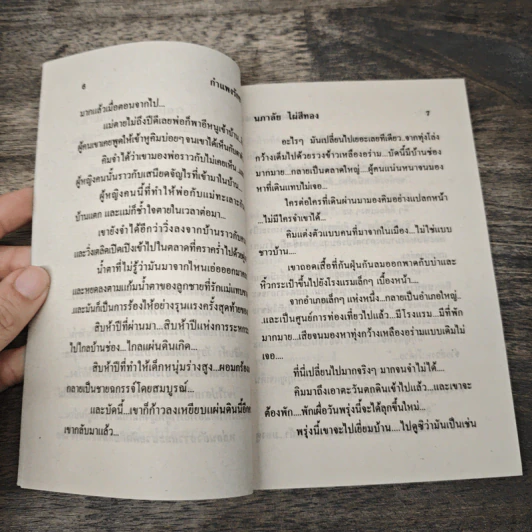 ๖
กำแพง
มากแล้วเมื่อตอนจากไป...
แม่ตายไม่ถึงปีดีเลยพ่อก็พาอีหนูเข้าบ้าน...
ผู้คนเขาเคยพูดให้เข้าหูคิมบ่อยๆ จนเขาได้เห็นกับ
คิมจำได้ว่าเขามองพ่อราวกับไม่เคยเห็น
ผู้หญิงคนนั้นราวกับเสนียดจัญไรที่เข้ามาในบ้าน...
ผู้หญิงคนนี้ที่ทำให้พ่อกับแม่ทะเลาะกัน
บ้านแตก และแม่ก็ช้ำใจตายในเวลาต่อมา...
เขายังจำได้อีกว่าวิ่งลงจากบ้านราวกับ
และวิ่งเตลิดเปิดเปิงเข้าไปในตลาดที่คราคร่ำไปด้วย
น้ำตาที่ไม่รู้ว่ามันมาจากไหนเอ่อออกมา
และหยดลงตามแก้มน้ำตาของลูกชายที่รักแม่
และมันก็เป็นการร้องไห้อย่างรุนแรงครั้งสุดท้าย
สิบห้าปีที่ผ่านมา...สิบห้าปีแห่งการระหก
ไปไกลบ้านช่อง...ไกลแผ่นดินเกิด...
สิบห้าปีที่ทำให้เด็กหนุ่มร่างสูง...ผอม
กลายเป็นชายฉกรรจ์โดยสมบูรณ์...
และบัดนี้...เขาก็ก้าวลงเหยียบแผ่นดินนี้อีก
เขากลับมาแล้ว...
นภาลัย ไผ่สีทอง
๗
อะไรๆ มันเปลี่ยนไปเยอะเลยทีเดียว..จากทุ่งโล่ง
กว้างเต็มไปด้วยรวงข้าวเหลืองอร่าม...บัดนี้มีบ้านช่อง
มากมาย...กลายเป็นตลาดใหญ่...ผู้คนแน่นหนาจนมอง
หาที่เดินแทบไม่เจอ...
ใครต่อใครที่เดินผ่านมามองคิมอย่างแปลกหน้า
...ไม่มีใครจำเขาได้...
คิมแต่งตัวแบบคนที่มาจากในเมือง..ไม่ใช่แบบ
ชาวบ้าน...
เขาถอดเสื้อที่กันฝุ่นกันลมออกพาดกับบ่าและ
หิ้วกระเป๋าขึ้นไปยังโรงแรมเล็กๆ เบื้องหน้า...
จากอำเภอเล็กๆ แห่งหนึ่ง....กลายเป็นอำเภอใหญ่..
..และเป็นศูนย์การท่องเที่ยวไปแล้ว...มีโรงแรม...มีที่พัก
มากมาย...เสียจนมองหาทุ่งกว้างเหลืองอร่ามแบบเดิมไม่
เจอ....
ที่นี่เปลี่ยนไปมากจริงๆ มากจนจำไม่ได้...
คิมมาถึงเอาตะวันตกดินเข้าไปแล้ว...และเขาจะ
ต้องพัก....พักเผื่อวันพรุ่งนี้จะได้ลุกขึ้นใหม่...
พรุ่งนี้เขาจะไปเยี่ยมบ้าน....ไปดูซิว่ามันเป็นเช่น